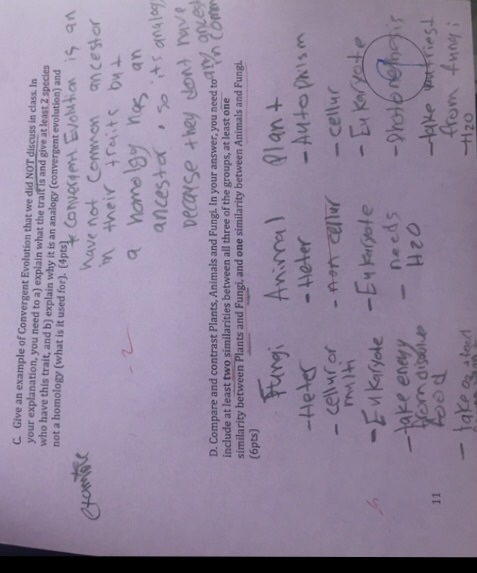 C. Give an example of Convergent Evolution that we did NOT discuss in class. In
your explanation, you need to a) explain what the trait is and give at least 2 species
who have this trait, and b) explain why it is an analogy (convergent evolution) and
not a homology (what is it used for). (4pts)
* Convergent Evolution is an
have not common ancestor
in their traits but
a homology has an
ancestor, so its analog
because they dont have
any ancest
in comm
- 2
D. Compare and contrast Plants, Animals and Fungi. In your answer, you need to
include at least two similarities between all three of the groups, at least one
similarity between Plants and Fungi, and one similarity between Animals and Fungi.
(6pts)
Fungi
- Heter
- cellur or
multi
- Eukaryote
- take energy
from
food
- take
Animal
- Heter
- non cellur
- Eukaryote
- needs
H2O
Plant
- Autophism
- cellur
- Eukaryote
- take
from fungi
- H2O
11